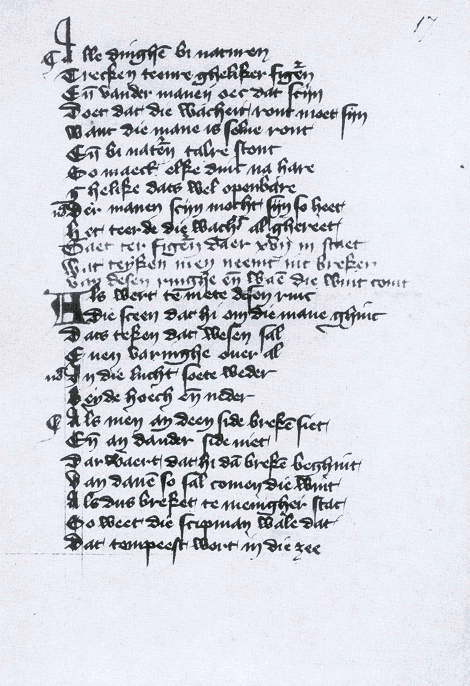 17
Alle dinghē bi naturen
Trecken teenre gheliker figern
Eñ vander manen oec dat scijn
Doet dat die wacheit ront moet sijn
Want die mane is selue ront
Eñ bi naten talre stont
So maect elke dinc na hare
Ghelike dats wel openbare
Der manen scijn mocht sijn so heet
Het teerde die wachᵗ al ghereet
Gaet ter figern daer xvij in staet
Wat teyken men neemt uit breken
van desen ringhe eñ waē die wint comt
Als wert te niete desen rinc
Die steen dat hi om die mane ghinc
Dats teken dat wesen sal
Euen varinghe ouer al
In die lucht soete weder
Beyde hoech eñ neder
Als men an deen side brekē siet
Eñ an dander side niet
Dar waert dat hi dā brekē beghint
Van danē so sal comen die wint
Als dus breket te menigher stat
So weet die scipman wale dat
Dat tempeest wort in die zee